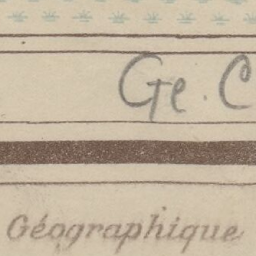 Ge. C
Géographique